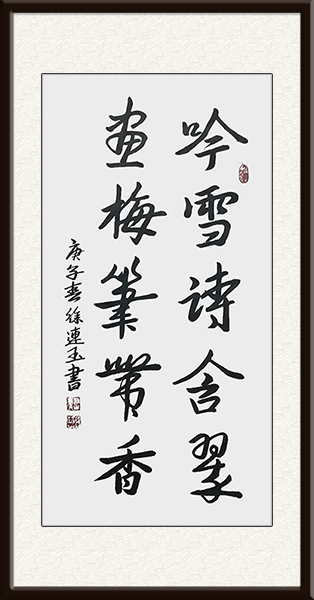 吟雪诗含翠
画梅笔带香
庚子春徐连玉书